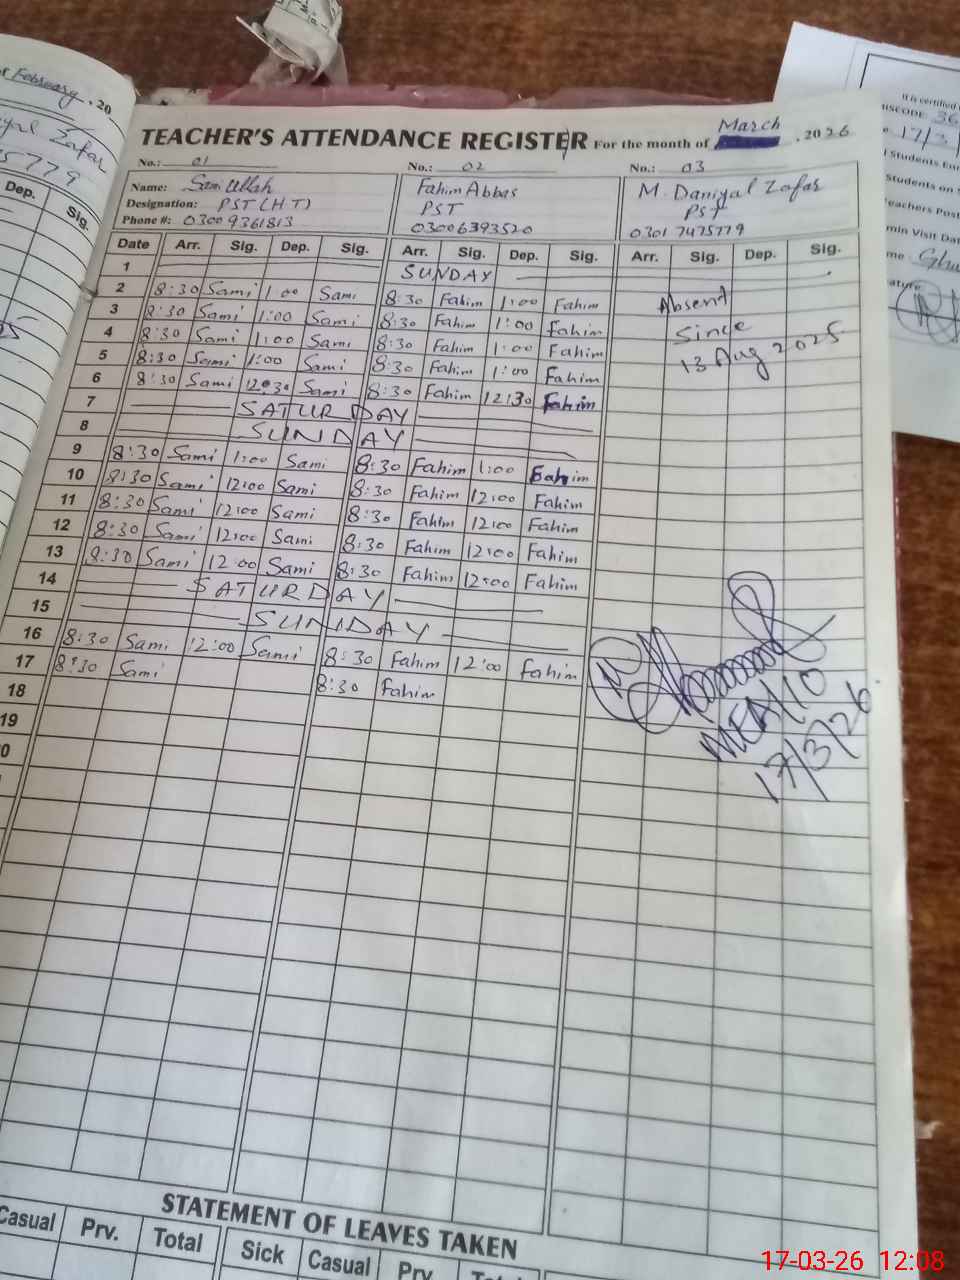 or February, 20
Zafar
5779
Dep. Sig.
TEACHER'S ATTENDANCE REGISTER For the month of March, 2026
No.: 01 No.: 02 No.: 03
Name: Sami ullah Fahim Abbas M. Daniyal Zafar
Designation: PST (H.T) PST PST
Phone #: 03009361813 03006393520 0301 7475779
Date Arr. Sig. Dep. Sig. Arr. Sig. Dep. Sig. Arr. Sig. Dep. Sig.
1 SUNDAY
2 8:30 Sami 1:00 Sami 8:30 Fahim 1:00 Fahim Absent
3 8:30 Sami 1:00 Sami 8:30 Fahim 1:00 Fahim Since
4 8:30 Sami 1:00 Sami 8:30 Fahim 1:00 Fahim 13 Aug 2025
5 8:30 Sami 1:00 Sami 8:30 Fahim 1:00 Fahim
6 8:30 Sami 12:30 Sami 8:30 Fahim 12:30 Fahim
7 SATURDAY
8 SUNDAY
9 8:30 Sami 1:00 Sami 8:30 Fahim 1:00 Fahim
10 8:30 Sami 12:00 Sami 8:30 Fahim 12:00 Fahim
11 8:30 Sami 12:00 Sami 8:30 Fahim 12:00 Fahim
12 8:30 Sami 12:00 Sami 8:30 Fahim 12:00 Fahim
13 8:30 Sami 12:00 Sami 8:30 Fahim 12:00 Fahim
14 SATURDAY
15 SUNDAY
16 8:30 Sami 12:00 Sami 8:30 Fahim 12:00 Fahim
17 8:30 Sami 8:30 Fahim
18
19
MEA/10
17/3/26
STATEMENT OF LEAVES TAKEN
Casual Prv. Total Sick Casual Prv. Total
It is certified
36
17/3
Students
Students on
Teachers Post
min Visit Dat
17-03-26 12:08